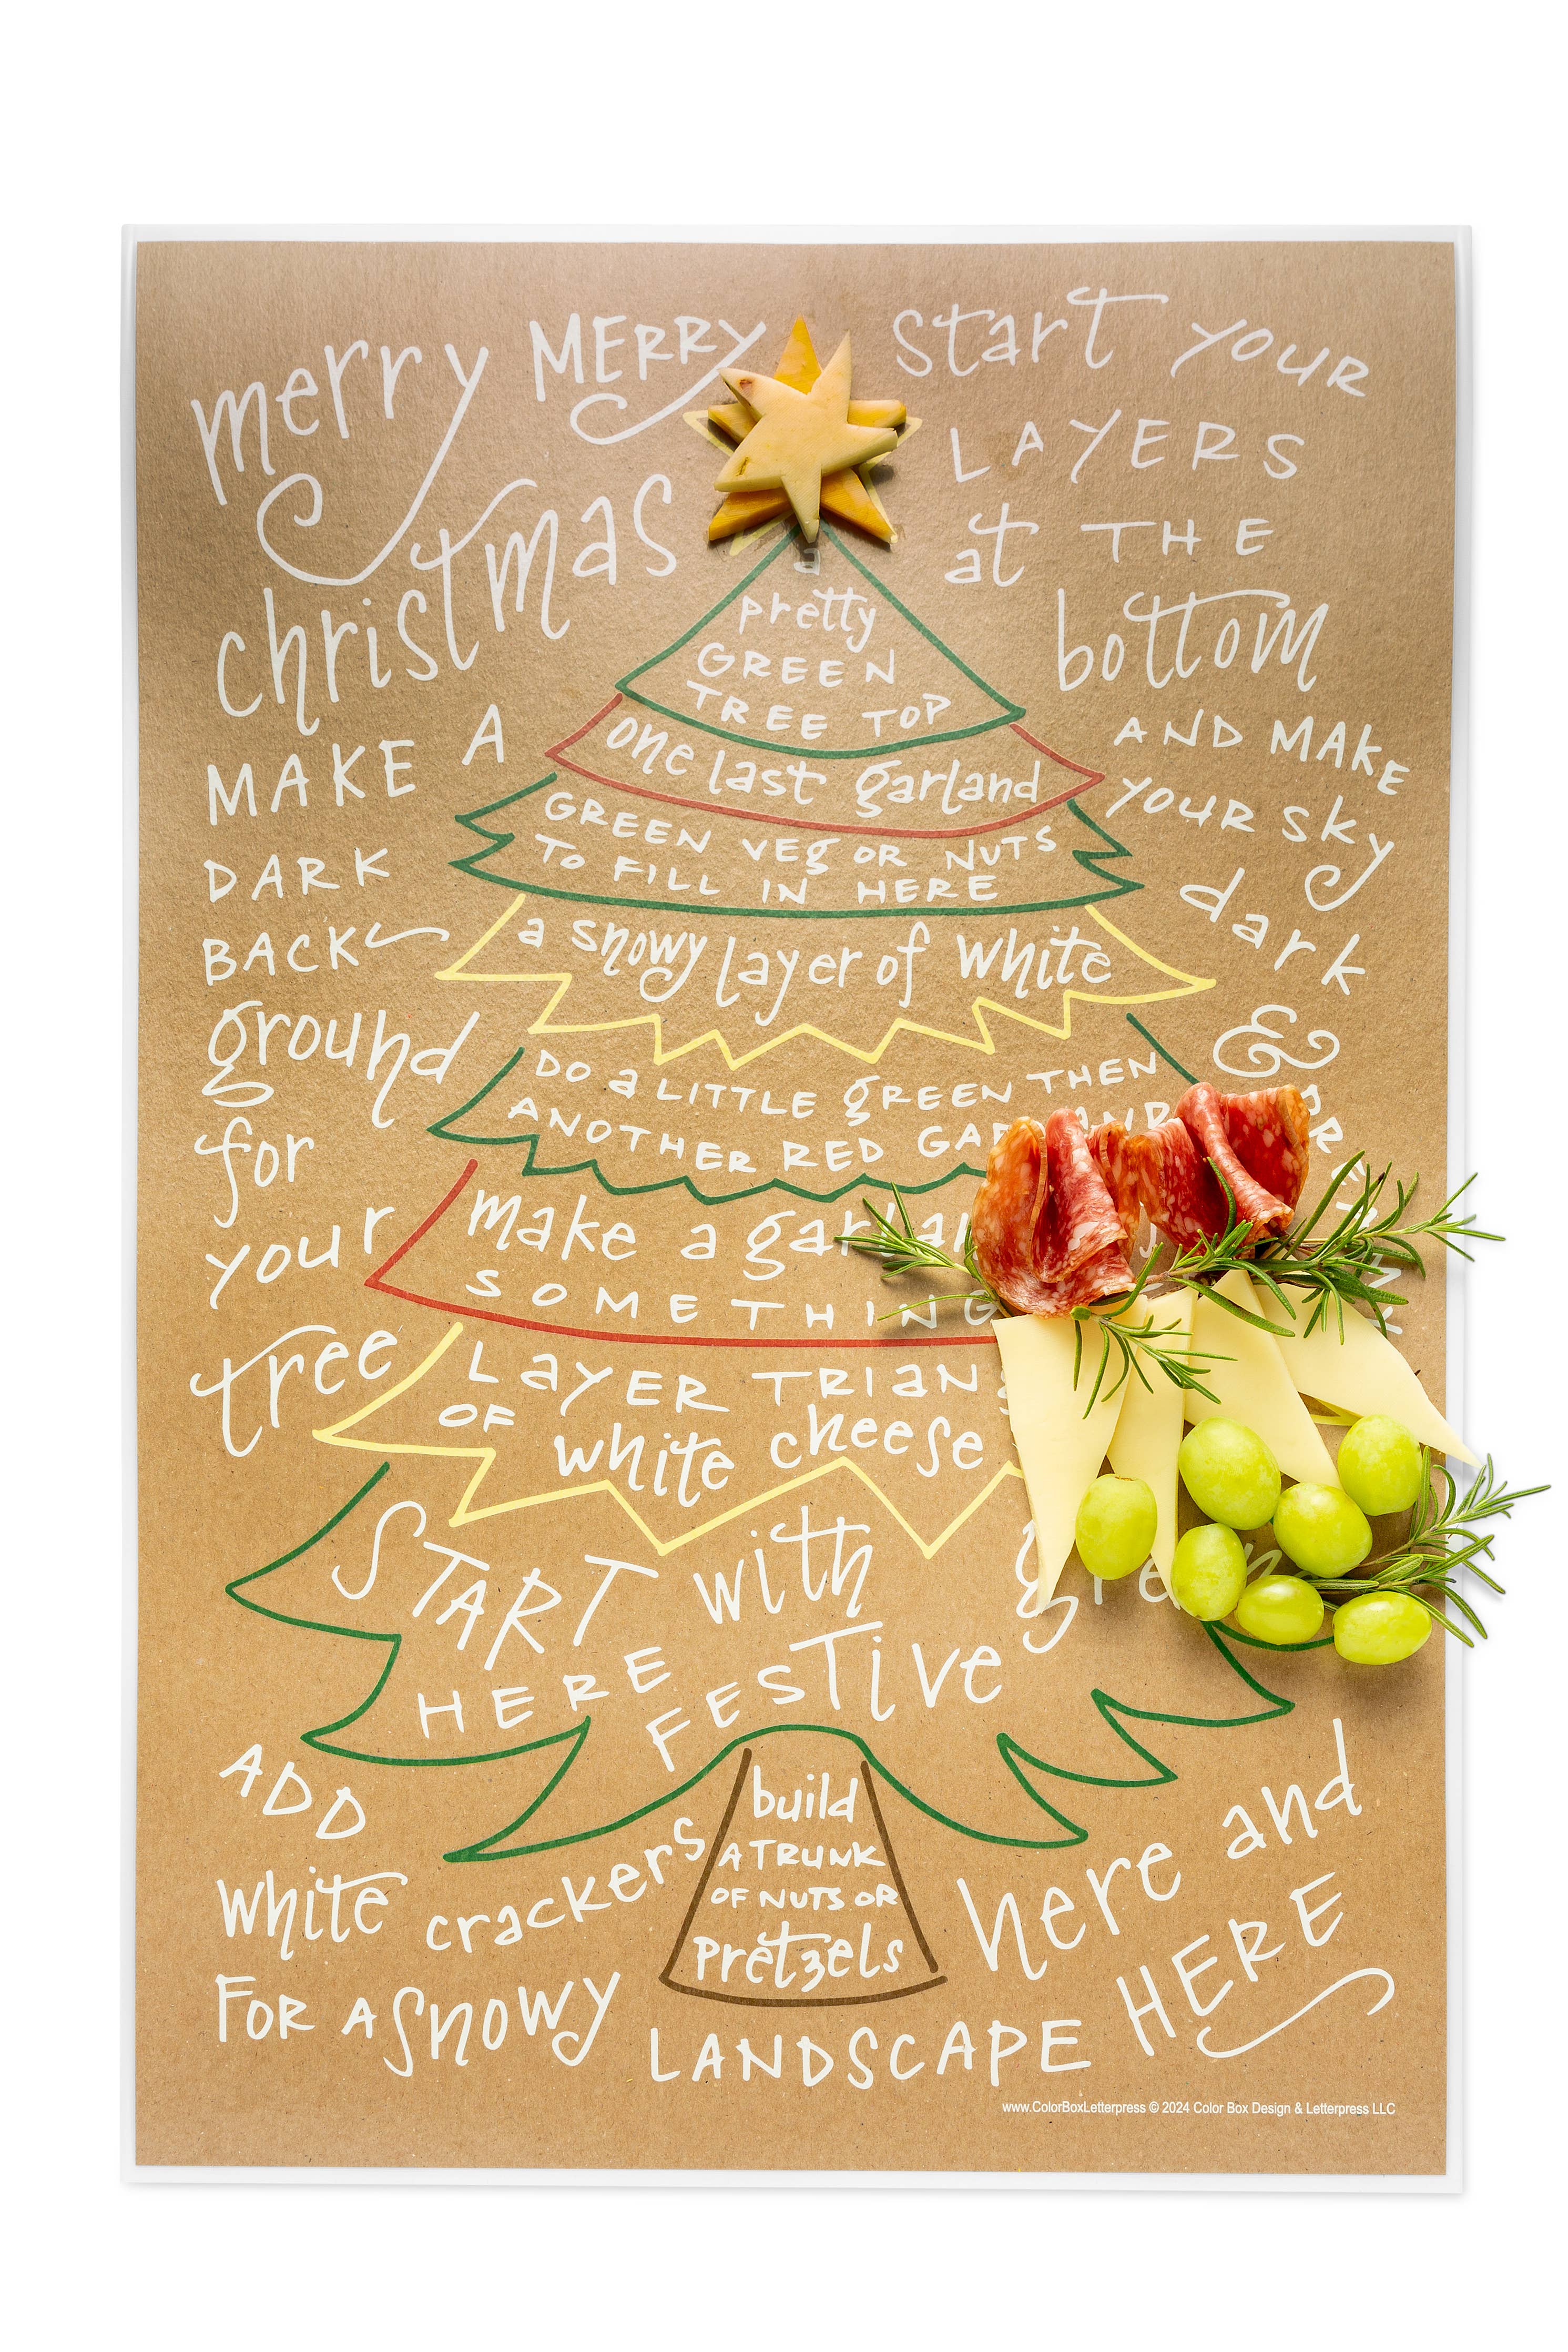 merry MERRY
christmas
MAKE A
DARK
BACK
ground
for
your
tree
start YOUR
LAYERS
at THE
bottom
AND MAKE
YOUR sky
dark
&
a
pretty
GREEN
TREE TOP
one last garland
GREEN VEG OR NUTS
TO FILL IN HERE
a snowy layer of white
DO a LITTLE GREEN THEN
ANOTHER RED
make a
SOMETHING
LAYER
OF white cheese
START with
HERE FESTIVE
build
A TRUNK
OF NUTS OR
pretzels
ADD
white crackers
here and
FOR A Snowy LANDSCAPE HERE
www.ColorBoxLetterpress © 2024 Color Box Design & Letterpress LLC